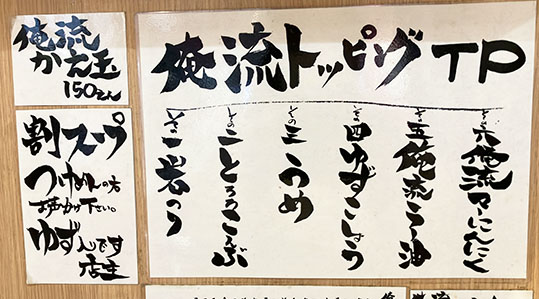 俺流
かえ玉
150えん
割スープ
つけめんの方
お声かけ下さい。
ゆず入です
店主
俺流トッピング TP
その一 岩のり
その二 とろろこんぶ
その三 うめ
その四 ゆずこしょう
その五 俺流ラー油
その六 俺流マーにんにく